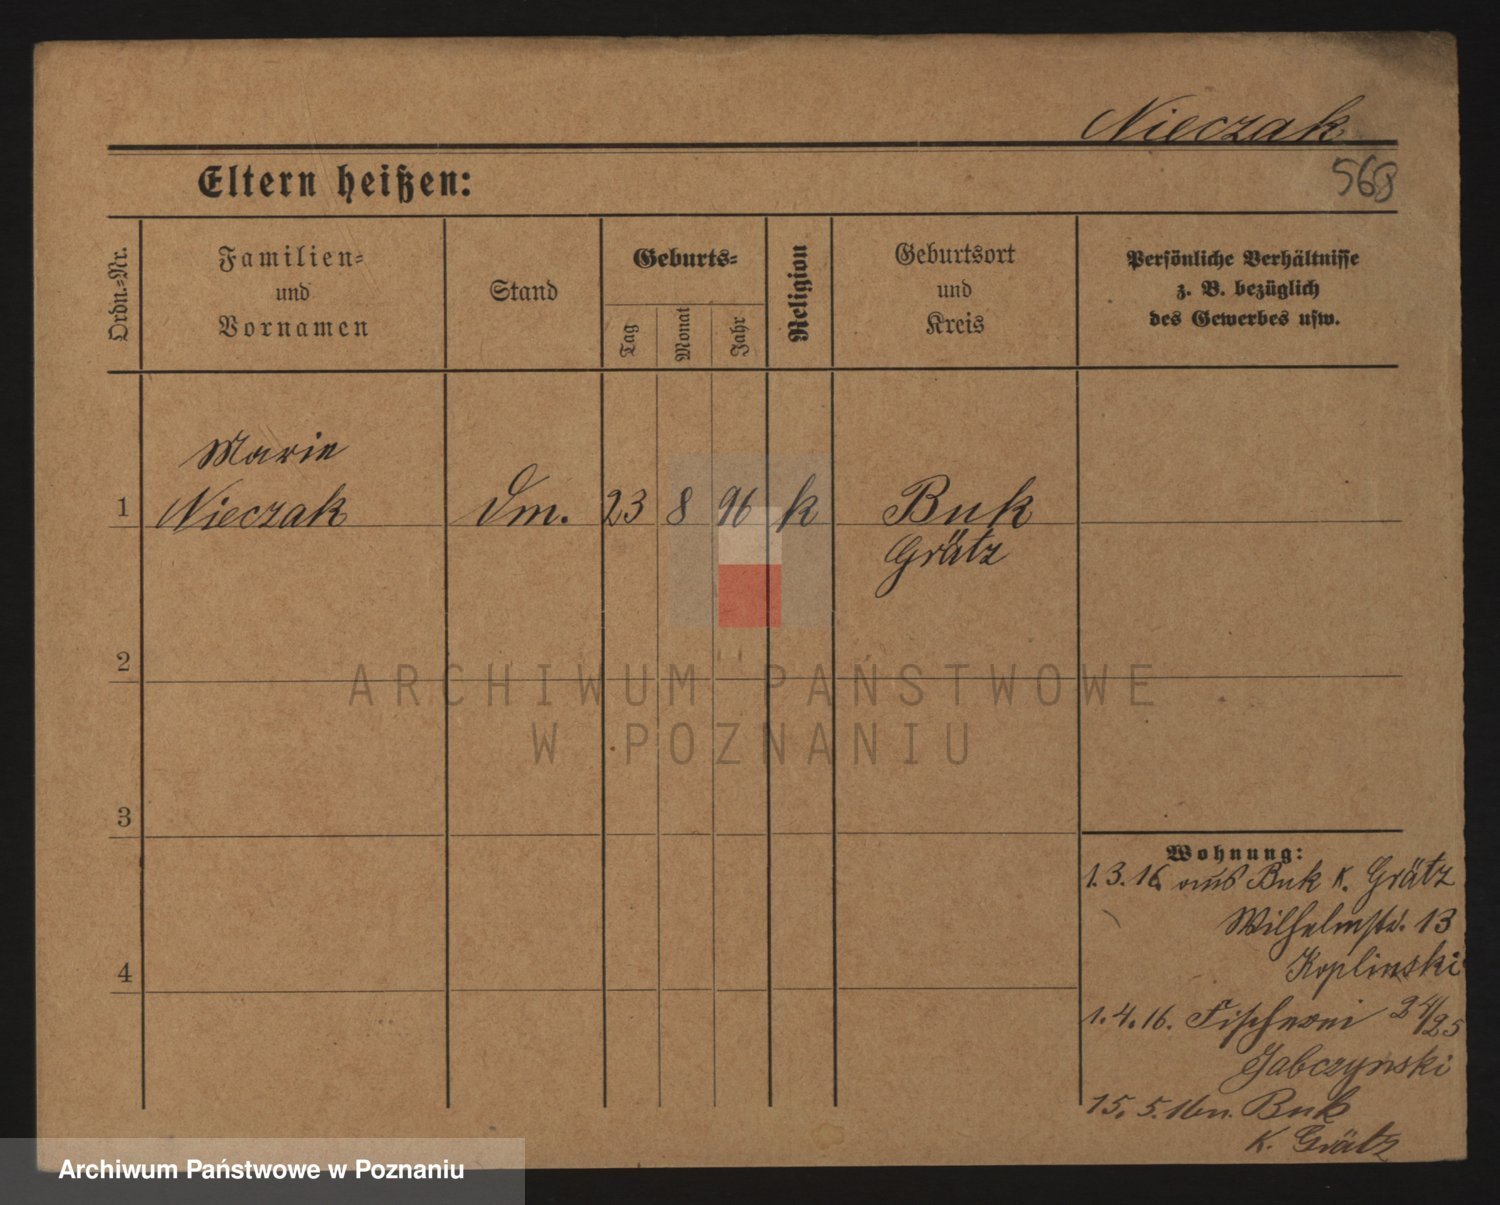 Nieczak
568
Eltern heißen:
Ordn.-Nr.
Familien-
und
Vornamen
Stand
Geburts-
Tag
Monat
Jahr
Religion
Geburtsort
und
Kreis
Persönliche Verhältnisse
z. B. bezüglich
des Gewerbes usw.
Marie
1 Nieczak Dm. 23 8 96 k Buk
Grätz
2
ARCHIWUM PAŃSTWOWE
W POZNANIU
3
Wohnung:
1.3.16 aus Buk K. Grätz
Wilhelmstr. 13
Koplinski
4
1.4.16. Fischerei 24/25
Jabczynski
15. 5. 16 n. Buk
K. Grätz
Archiwum Państwowe w Poznaniu